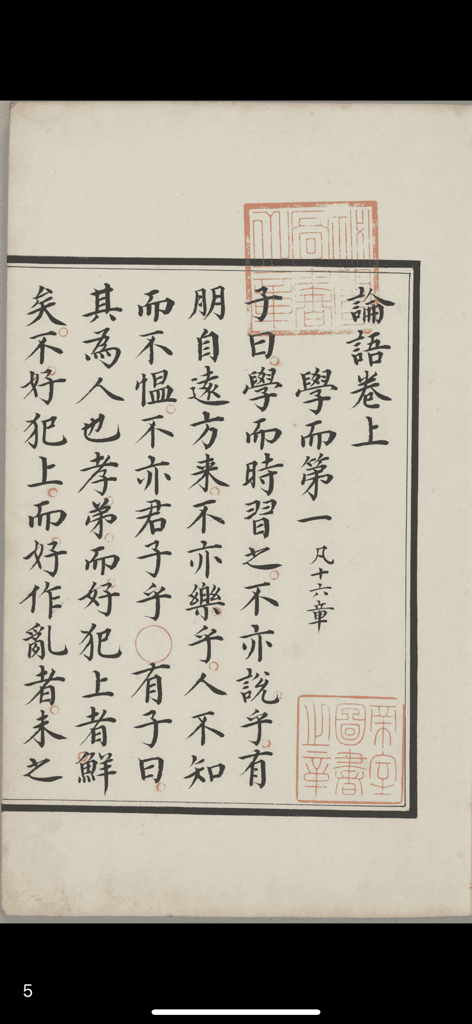 論語卷上
學而第一 凡十六章
子曰學而時習之不亦說乎有
朋自遠方来不亦樂乎人不知
而不愠不亦君子乎○有子曰
其為人也孝弟而好犯上者鮮
矣不好犯上而好作亂者未之
帝室
圖書
之章
5